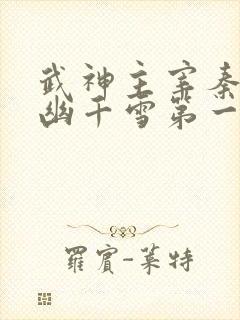 武神主宰秦
幽千雪第一
羅賓-萊特